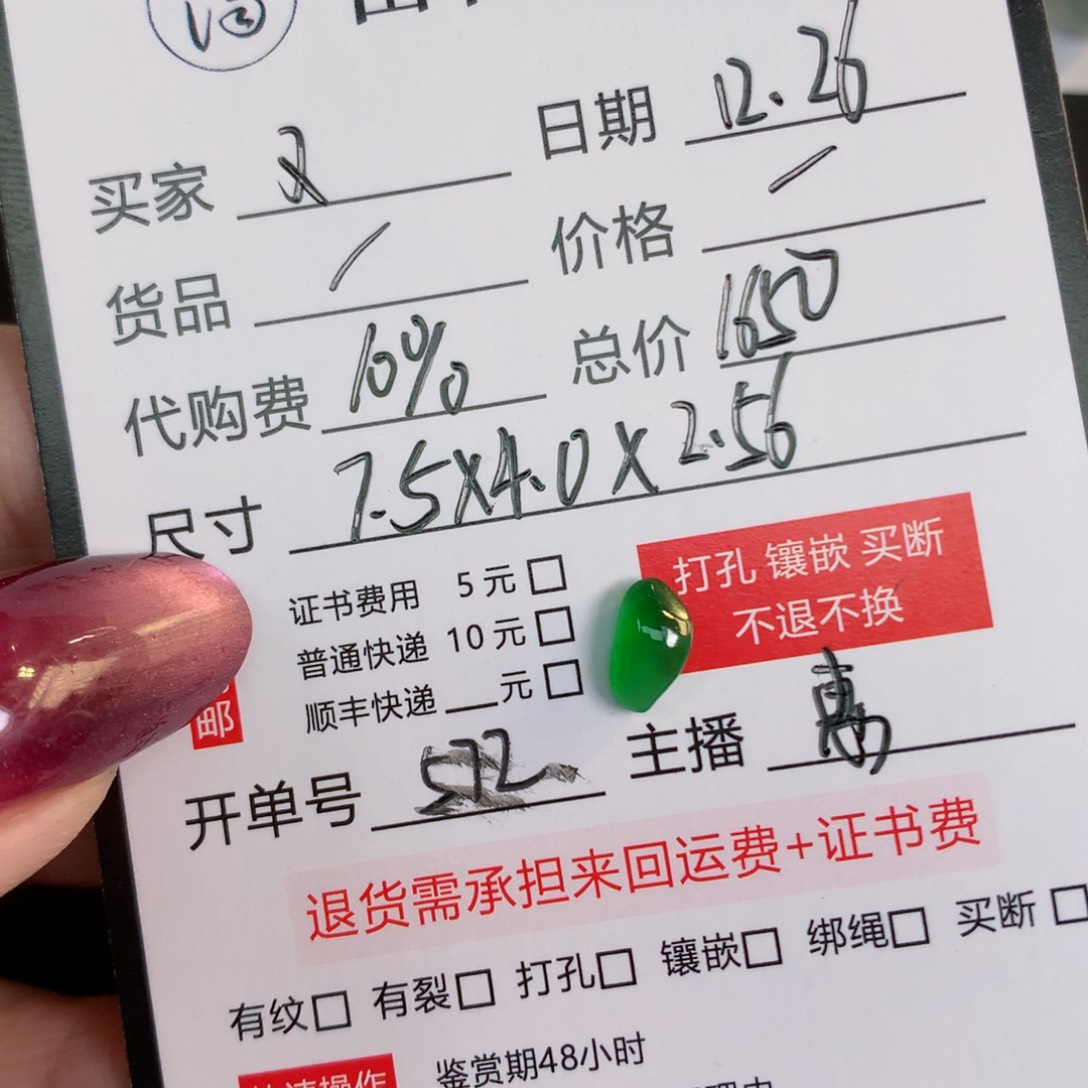 日期 12.26
买家
货品 / 价格 /
代购费 10% 总价 1650
尺寸 7.5X4.0X2.56
证书费用 5元□
普通快递 10元□
顺丰快递__元□
打孔 镶嵌 买断
不退不换
邮
开单号 572 主播
退货需承担来回运费+证书费
有纹□ 有裂□ 打孔□ 镶嵌□ 绑绳□ 买断□
鉴赏期48小时